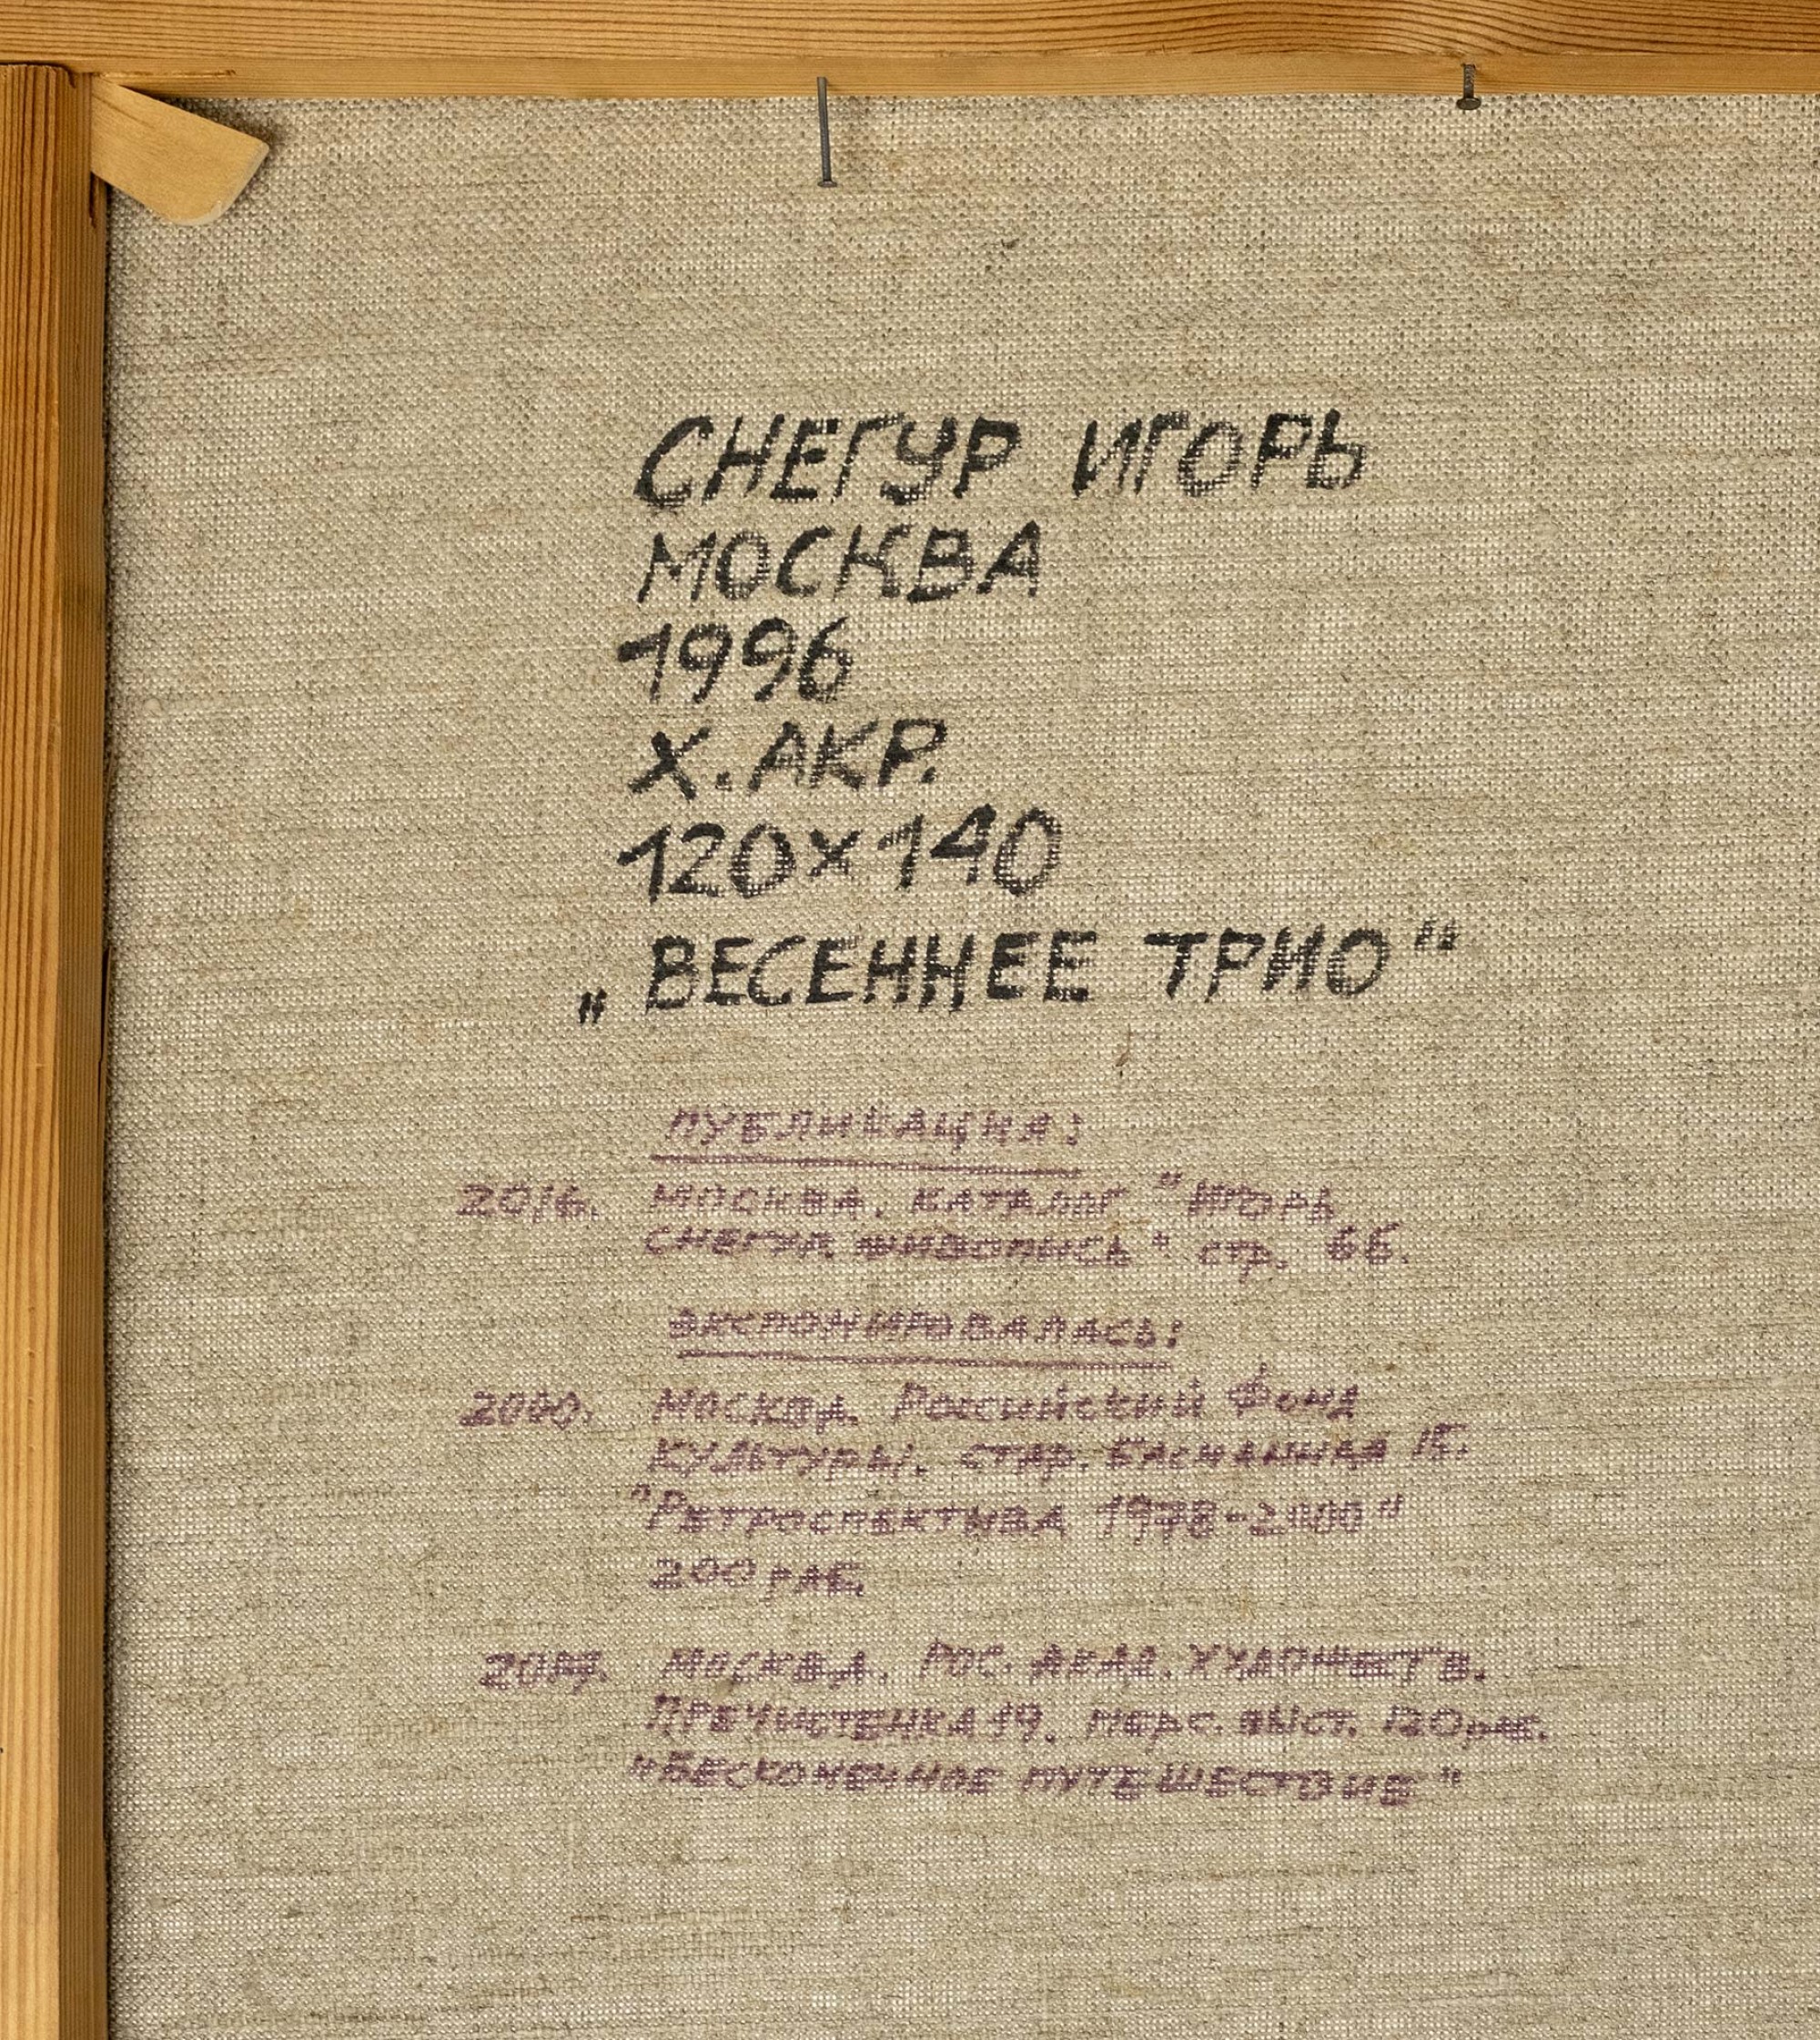 СНЕГУР ИГОРЬ
МОСКВА
1996
Х. АКР.
120×140
„ВЕСЕННЕЕ ТРИО"
ПУБЛИКАЦИЯ:
2016. МОСКВА. КАТАЛОГ "ИГОРЬ
СНЕГУР. ЖИВОПИСЬ" стр. 66.
ЭКСПОНИРОВАЛАСЬ:
2000. МОСКВА. Российский Фонд
КУЛЬТУРЫ. СТАР. БАСМАННАЯ
"РЕТРОСПЕКТИВА 1978-2000"
200 РАБ.
МОСКВА. РОС. АКАД. ХУДОЖЕСТВ.
ПРЕЧИСТЕНКА 19. ПЕРС. ВЫСТ. 120 раб.
"БЕСКОНЕЧНОЕ ПУТЕШЕСТВИЕ"